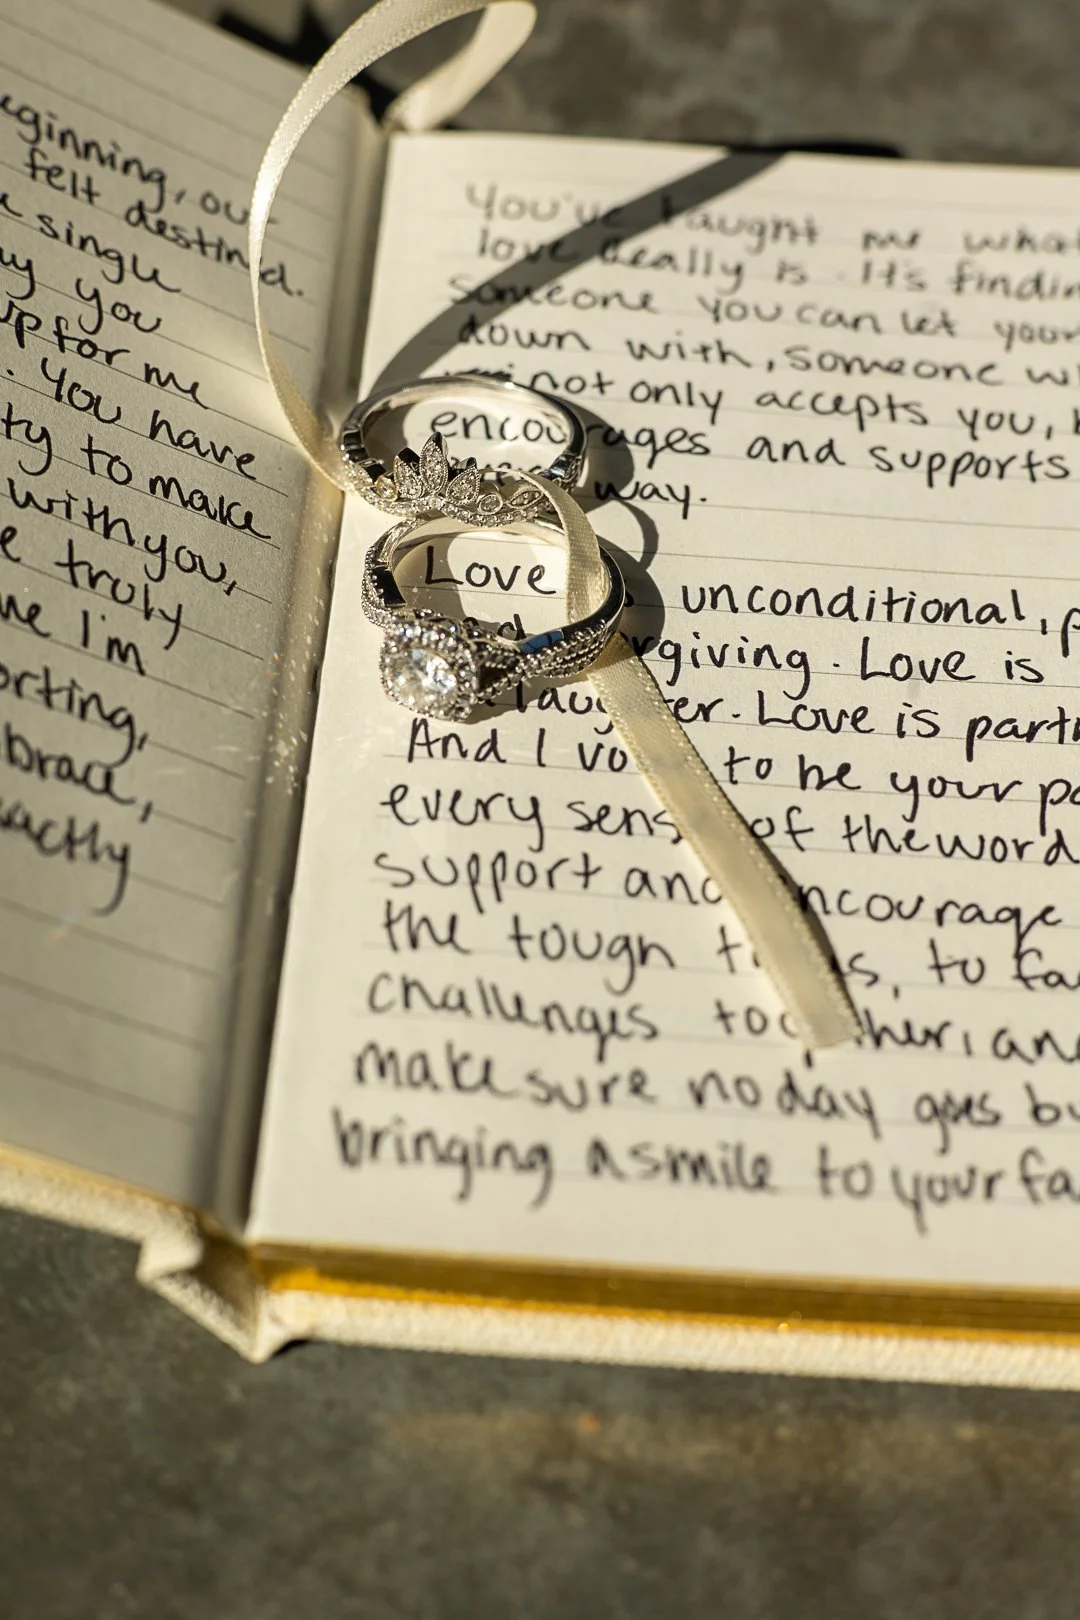 eginning, our
felt destined.
singu
you
up for me
. You have
ty to make
with you,
truly
me I'm
orting,
brace,
actly
You've taught me what
love really is. It's findin
someone you can let your
down with, someone w
not only accepts you, b
encourages and supports
way.
Love is unconditional, p
and forgiving. Love is
laughter. Love is partn
And I vo to be your pa
every sense of the word
support and encourage
the tough times, to fa
challenges together, and
make sure no day goes by
bringing a smile to your fa